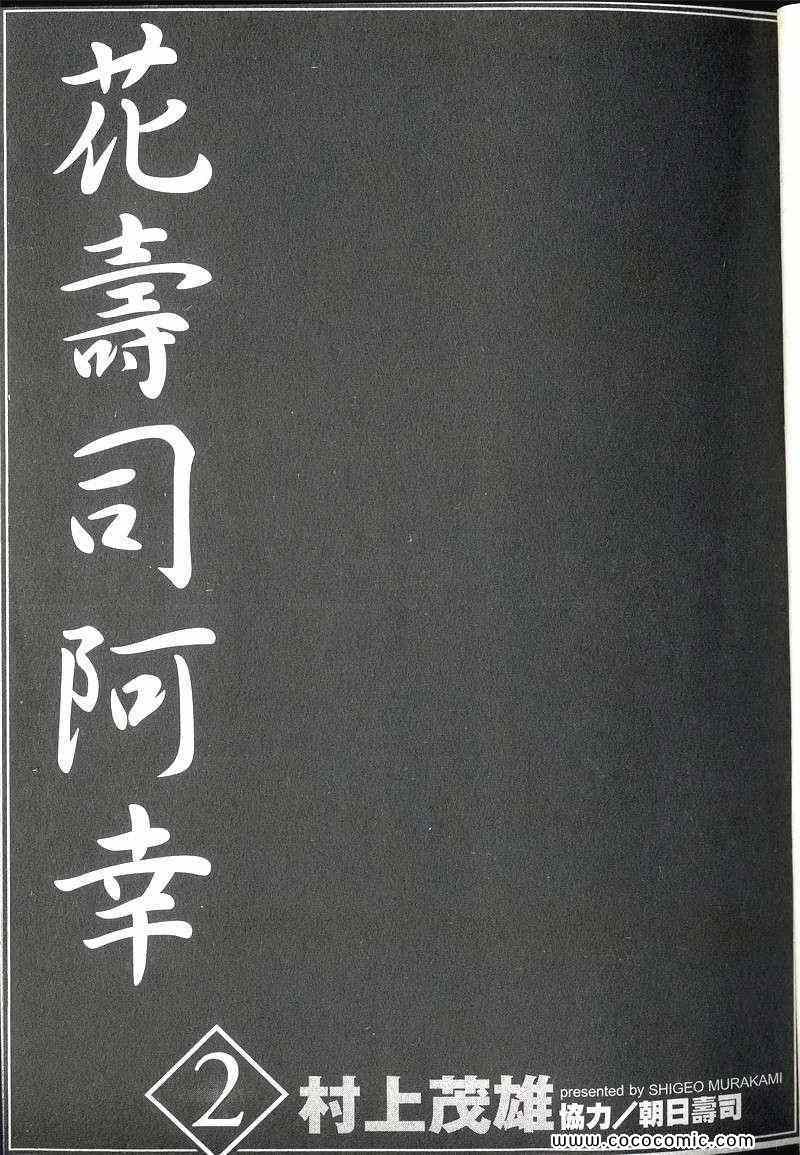 花壽司阿幸
2
村上茂雄
presented by SHIGEO MURAKAMI
協力／朝日壽司
www.cococomic.com